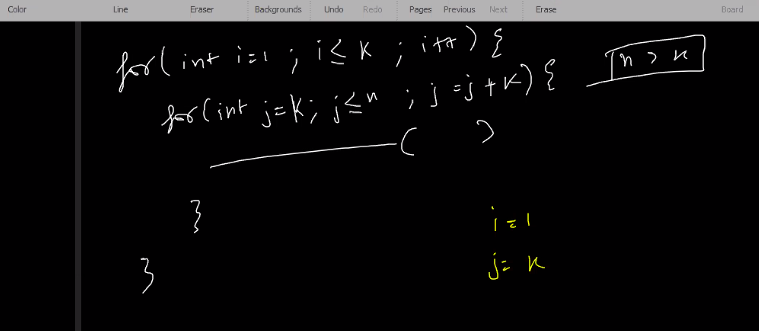 Color Line Eraser Backgrounds Undo Redo Pages Previous Next Erase Board
for( int i=1 ; i≤k ; i++ ) {
n > k
for( int j=k; j≤n ; j=j+k) {
( )
}
i=1
j=k
}